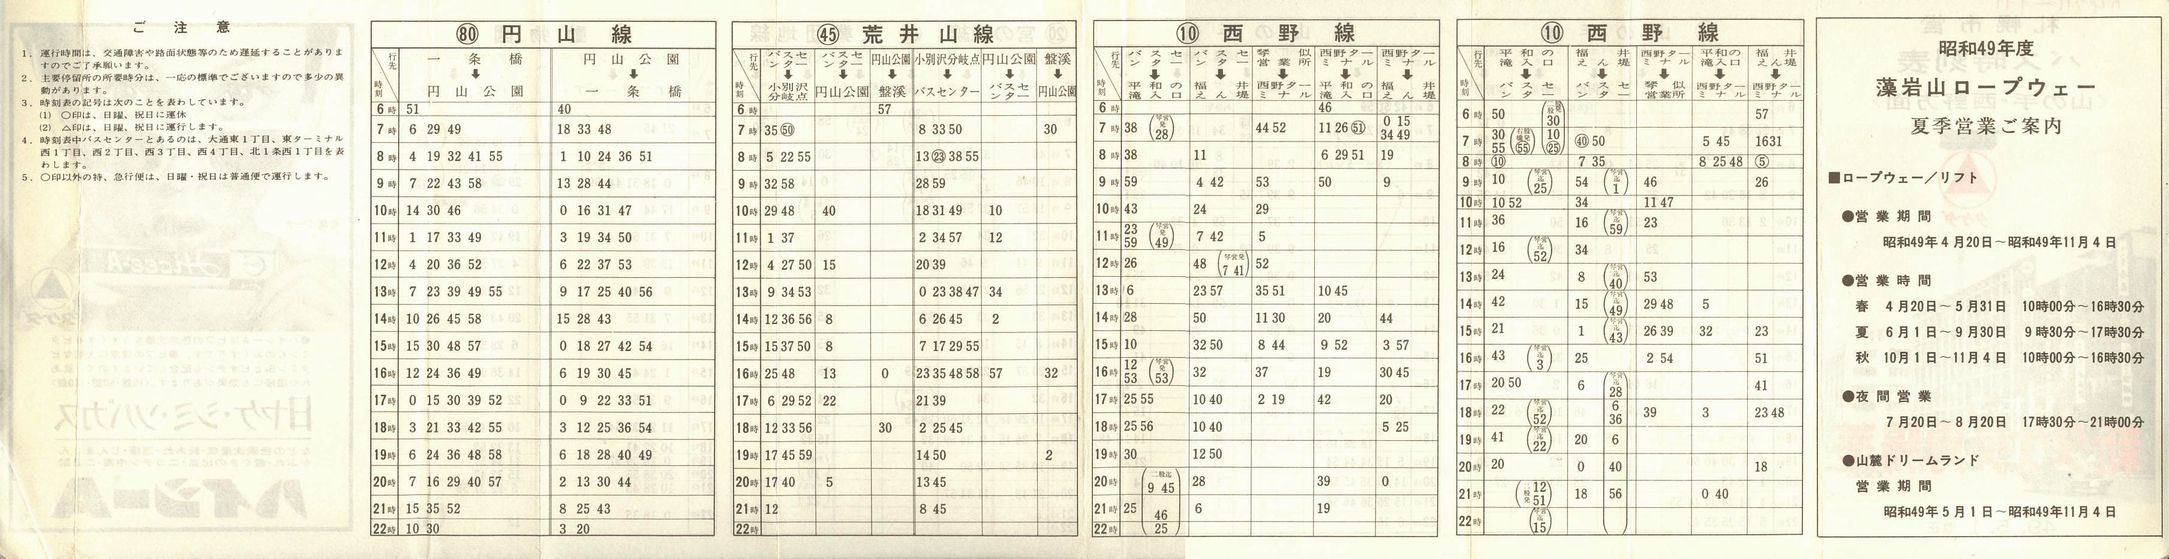 ご注意
1. 運行時間は、交通障害や路面状態等のため遅延することがありま
すのでご了承願います。
2. 主要停留所の所要時分は、一応の標準でございますので多少の異
動があります。
3. 時刻表の記号は次のことを表わしています。
(1) ○印は、日曜、祝日に運休
(2) △印は、日曜、祝日に運行します。
4. 時刻表中バスセンターとあるのは、大通東1丁目、東ターミナル
西1丁目、西2丁目、西3丁目、西4丁目、北1条西1丁目を表
わします。
5. ○印以外の特、急行便は、日曜・祝日は普通便で運行します。
80 円山線
行先 時刻
一条橋 → 円山公園
円山公園 → 一条橋
6時 51 | 40
7時 6 29 49 | 18 33 48
8時 4 19 32 41 55 | 1 10 24 36 51
9時 7 22 43 58 | 13 28 44
10時 14 30 46 | 0 16 31 47
11時 1 17 33 49 | 3 19 34 50
12時 4 20 36 52 | 6 22 37 53
13時 7 23 39 49 55 | 9 17 25 40 56
14時 10 26 45 58 | 15 28 43
15時 15 30 48 57 | 0 18 27 42 54
16時 12 24 36 49 | 6 19 30 45
17時 0 15 30 39 52 | 0 9 22 33 51
18時 3 21 33 42 55 | 3 12 25 36 54
19時 6 24 36 48 58 | 6 18 28 40 49
20時 7 16 29 40 57 | 2 13 30 44
21時 15 35 52 | 8 25 43
22時 10 30 | 3 20
45 荒井山線
行先 時刻
バスセンター → 小別沢分岐点
バスセンター → 円山公園
円山公園 → 盤渓
小別沢分岐点 → バスセンター
円山公園 → バスセンター
盤渓 → 円山公園
6時 | | | 57 | | |
7時 35 ㊿ | | | 8 33 50 | | 30
8時 5 22 55 | | | 13 ㉓ 38 55 | |
9時 32 58 | | | 28 59 | |
10時 29 48 | 40 | | 18 31 49 | 10 |
11時 1 37 | | | 2 34 57 | 12 |
12時 4 27 50 | 15 | | 20 39 | |
13時 9 34 53 | | | 0 23 38 47 | 34 |
14時 12 36 56 | 8 | | 6 26 45 | 2 |
15時 15 37 50 | 8 | | 7 17 29 55 | |
16時 25 48 | 13 | 0 | 23 35 48 58 | 57 | 32
17時 6 29 52 | 22 | | 21 39 | |
18時 12 33 56 | | 30 | 2 25 45 | |
19時 17 45 59 | | | 14 50 | | 2
20時 17 40 | 5 | | 13 45 | |
21時 12 | | | 8 45 | |
22時
10 西野線
行先 時刻
バスセンター → 平和の滝入口
バスセンター → 福井えん堤
琴似営業所 → 西野ターミナル
西野ターミナル → 平和の滝入口
西野ターミナル → 福井えん堤
6時 | | | | 46 |
7時 38 (琴営発 28) | | 44 52 | 11 26 (51) | 0 15 34 49
8時 38 | 11 | | 6 29 51 | 19
9時 59 | 4 42 | 53 | 50 | 9
10時 43 | 24 | 29 | |
11時 23 59 (琴営発 49) | 7 42 | 5 | |
12時 26 | 48 (琴営発 7 41) | 52 | |
13時 6 | 23 57 | 35 51 | 10 45 |
14時 28 | 50 | 11 30 | 20 | 44
15時 10 | 32 50 | 8 44 | 9 52 | 3 57
16時 12 53 (琴営発 53) | 32 | 37 | 19 | 30 45
17時 25 55 | 10 40 | 2 19 | 42 | 20
18時 25 56 | 10 40 | | | 5 25
19時 30 | 12 50 | | |
20時 (二股迄 9 45) | 28 | | 39 | 0
21時 25 (46 | 6 | | 19 |
22時 25)
10 西野線
行先 時刻
平和の滝入口 → バスセンター
福井えん堤 → バスセンター
西野ターミナル → 琴似営業所
平和の滝入口 → 西野ターミナル
福井えん堤 → 西野ターミナル
6時 50 30 | | | | 57
7時 30 55 (55) 10 (25) | ㊵ 50 | | 5 45 | 16 31
8時 ⑩ | 7 35 | | 8 25 48 | ⑤
9時 10 (琴営迄 25) | 54 (琴営迄 1) | 46 | | 26
10時 10 52 | 34 | 11 47 | |
11時 36 | 16 (琴営迄 59) | 23 | |
12時 16 (琴営迄 52) | 34 | | |
13時 24 | 8 (琴営迄 40) | 53 | |
14時 42 | 15 (琴営迄 49) | 29 48 | 5 |
15時 21 | 1 (琴営迄 43) | 26 39 | 32 | 23
16時 43 (琴営迄 3) | 25 | 2 54 | | 51
17時 20 50 | 6 (琴営迄 28 | | | 41
18時 22 (琴営迄 52) | 6 36 | 39 | 3 | 23 48
19時 41 (琴営迄 22) | 20 6 | | |
20時 20 | 0 40 | | | 18
21時 (二股発 12 51) | 18 56 | | 0 40 |
22時 (琴営迄 15) | ) | | |
昭和49年度
藻岩山ロープウェー
夏季営業ご案内
■ロープウェー/リフト
●営業期間
昭和49年4月20日~昭和49年11月4日
●営業時間
春 4月20日~5月31日 10時00分~16時30分
夏 6月1日~9月30日 9時30分~17時30分
秋 10月1日~11月4日 10時00分~16時30分
●夜間営業
7月20日~8月20日 17時30分~21時00分
●山麓ドリームランド
営業期間
昭和49年5月1日~昭和49年11月4日